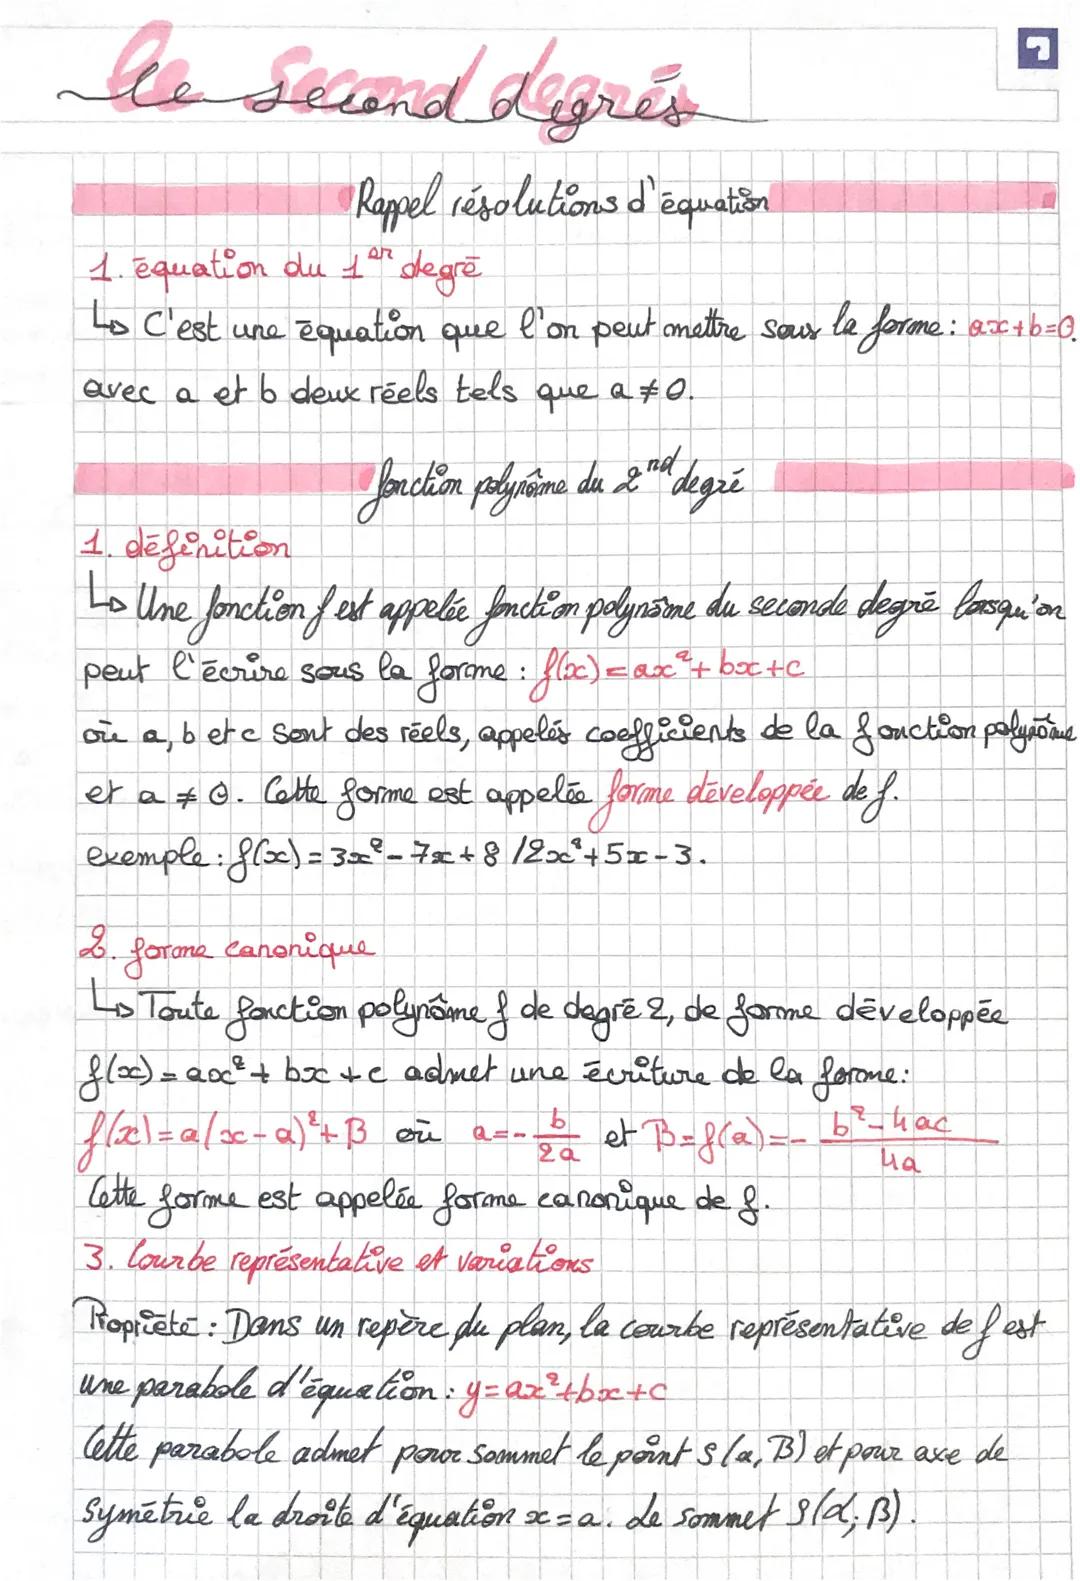 le second degrés
Rappel résolutions d'équation
1. équation du 1er degré
↳ C'est une équation que l'on peut mettre sous la forme : ax+b=0.
avec a et b deux réels tels que a ≠ 0.
fonction polynôme du 2nd degré
1. définition
↳ Une fonction f est appelée fonction polynôme du seconde degré lorsqu'on
peut l'écrire sous la forme : f(x) = ax²+ bx+c
où a, b et c sont des réels, appelés coefficients de la fonction polynôme
et a ≠ 0. Cette forme est appelée forme développée de f.
exemple : f(x) = 3x² - 7x + 8 / 2x² + 5x - 3.
2. forme canonique
↳ Toute fonction polynôme f de degré 2, de forme développée
f(x) = ax² + bx + c admet une écriture de la forme :
f(x) = a(x-a)²+ B où a = - b/2a et B = f(a) = - b²-4ac/4a
Cette forme est appelée forme canonique de f.
3. Courbe représentative et variations
Propriété : Dans un repère du plan, la courbe représentative de f est
une parabole d'équation : y = ax²+bx+c
Cette parabole admet pour sommet le point S (a, B) et pour axe de
symétrie la droite d'équation x = a. de sommet S(α; β).